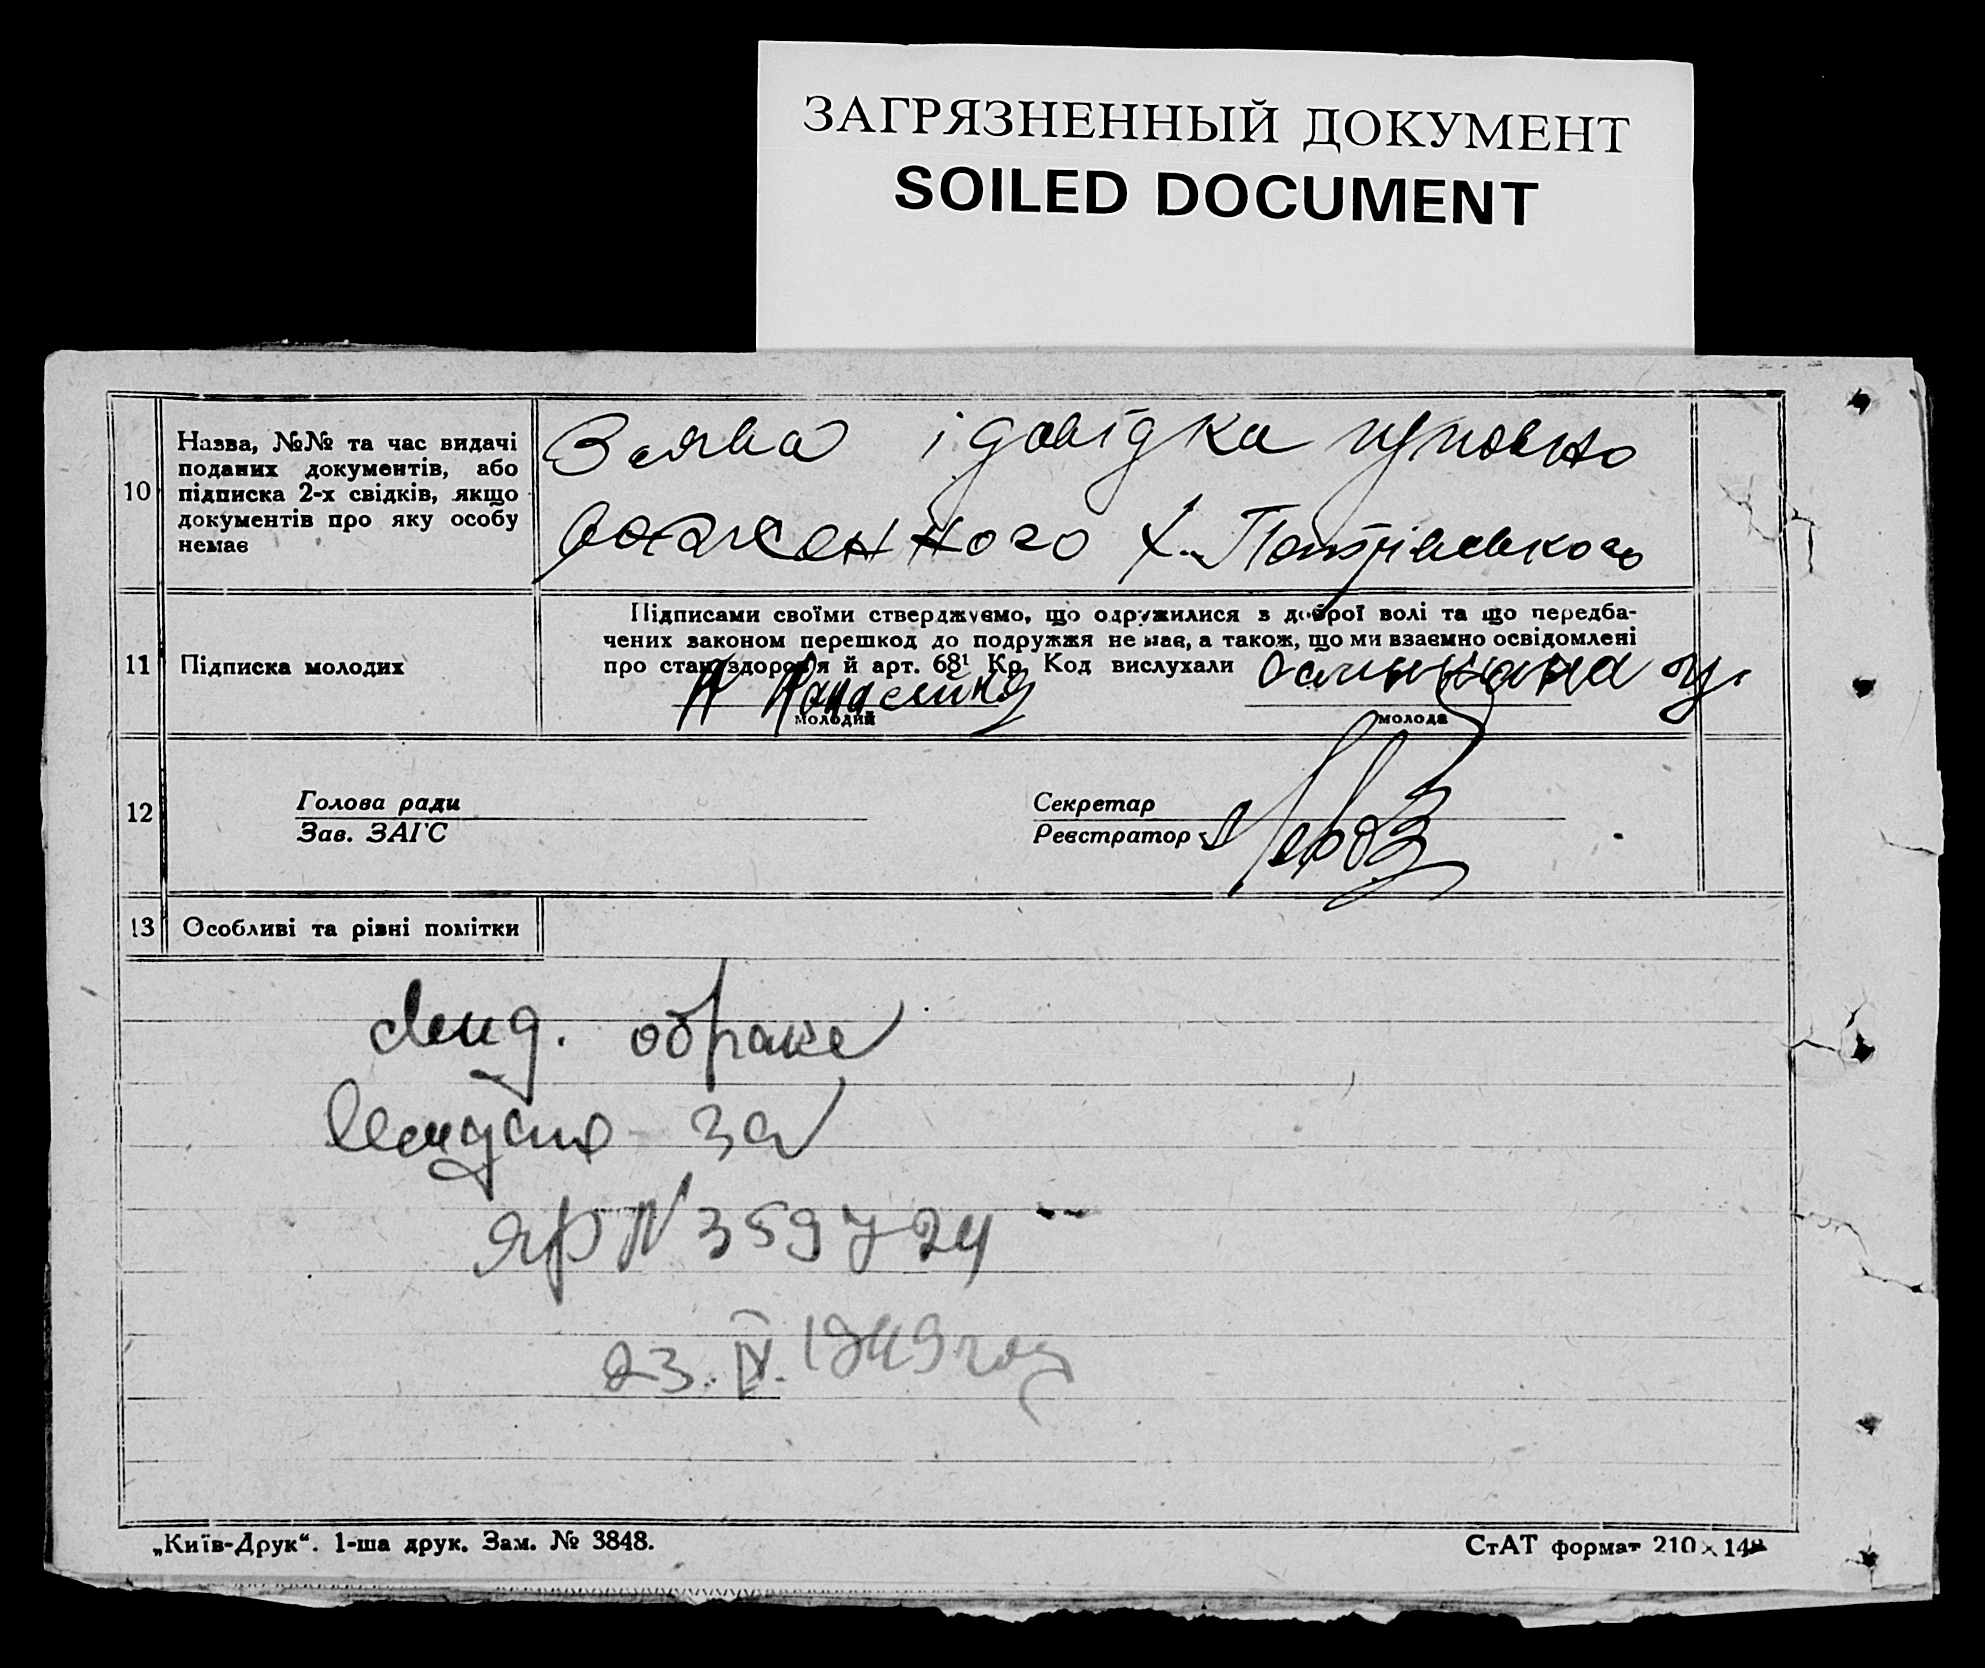 ЗАГРЯЗНЕННЫЙ ДОКУМЕНТ
SOILED DOCUMENT
10
Назва, №№ та час видачі
поданих документів, або
підписка 2-х свідків, якщо
документів про яку особу
немає
Заява і довідка
Х. Петрівського
11
Підписка молодих
Підписами своїми стверджуємо, що одружилися з доброї волі та що передба-
чених законом перешкод до подружжя не має, а також, що ми взаємно освідомлені
про стан здоров'я й арт. 68¹ Кр. Код вислухали
молодий
молода
12
Голова ради
Зав. ЗАГС
Секретар
Реєстратор
13
Особливі та різні помітки
о браке
за
ЯФ N 359724
23. IV. 1949 году
„Київ-Друк“. 1-ша друк. Зам. № 3848.
СтАТ формат 210 × 148